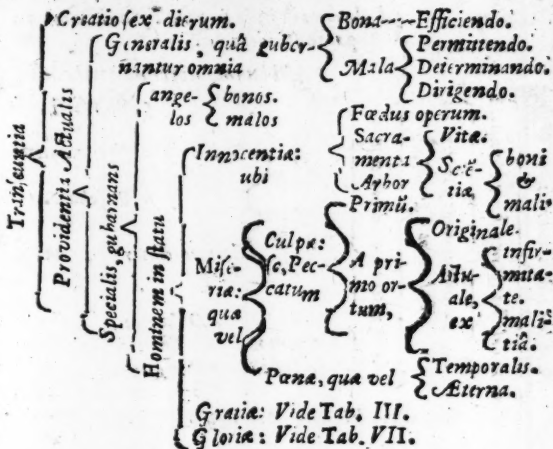 Creatio sex dierum.
Bona Efficiendo.
Generalis, quâ guber-
nantur omnia
Mala
Permittendo.
Determinando.
Dirigendo.
Transeuntia
Providentia Actualis
Specialis gubernans
ange-
los
bonos.
malos
Hominem in statu
Innocentiæ:
ubi
Fœdus operum.
Sacra-
menta
Arbor
Vitæ.
Sciē-
tiæ
boni
&
mali
Miseriæ:
quæ
vel
Culpæ:
sc, Pec-
catum
Primũ.
A pri-
mo or-
tum,
Originale
Actu-
ale,
ex
infir-
mita-
te.
mali-
tiâ.
Pœnæ, quæ vel
Temporalis.
Æterna.
Gratiæ: Vide Tab. III.
Gloriæ: Vide Tab. VII.